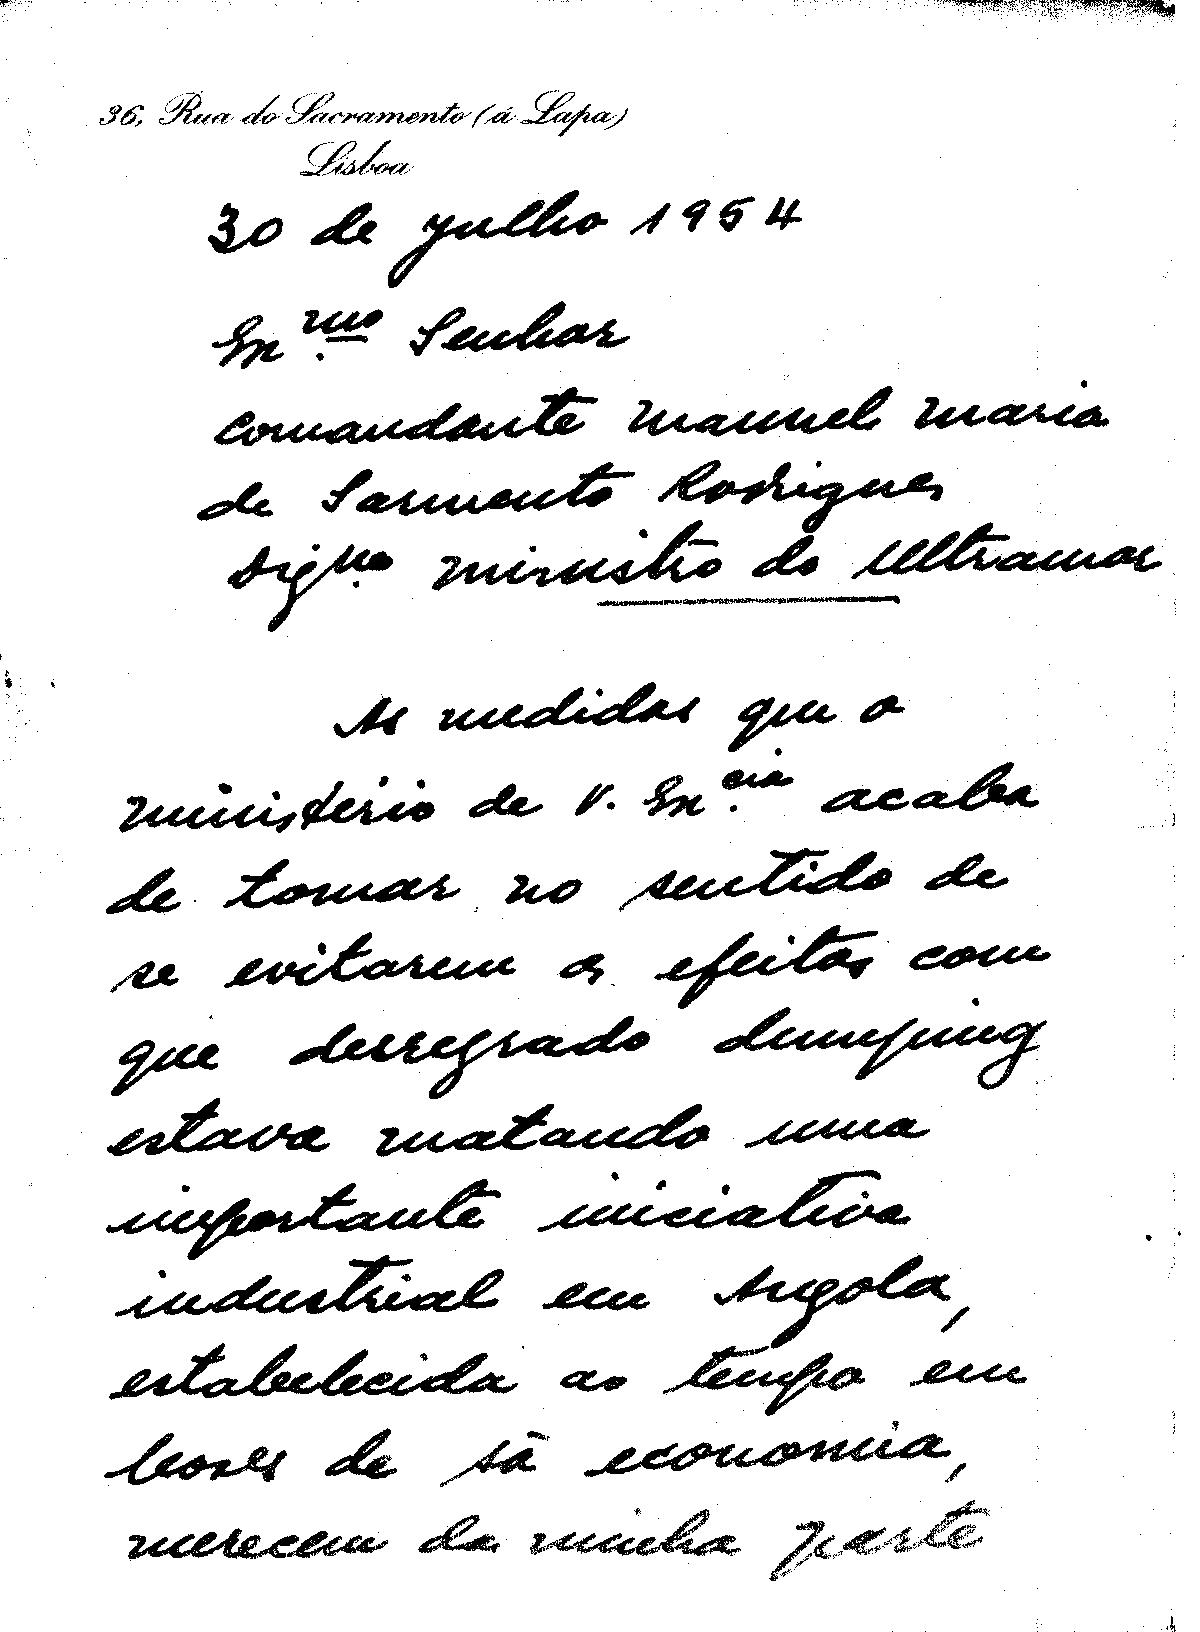 36, Rua do Sacramento (á Lapa)
Lisboa
30 de julho 1954
Exmo. Senhor
Comandante Manuel Maria
de Sarmento Rodrigues
Digno. Ministro do Ultramar
As medidas que o
Ministério de V. Excia. acaba
de tomar no sentido de
se evitarem os efeitos com
que desregrado dumping
estava matando uma
importante iniciativa
industrial em Angola,
estabelecida ao tempo em
bases de sã economia,
merecem da minha parte